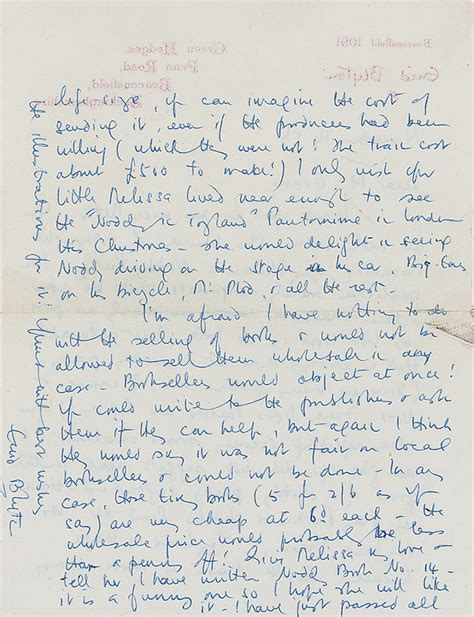 Beaconsfield 1091
Green Hedges,
Penn Road,
Beaconsfield,
Enid Blyton
life size, yr can imagine the cost of
sending it, even if the producers had been
willing (which they were not! The train cost
about £500 to make!) I only wish yr
little Melissa lived near enough to see
the "Noddy in Toyland" Pantomime in London
this Christmas - she would delight in seeing
Noddy driving on the stage in his car, Big-Ears
on his bicycle, Mr. Plod, & all the rest.
I'm afraid I have nothing to do
with the selling of books & would not be
allowed to sell them wholesale in any
case. Booksellers would object at once!
Yr could write to the publishers & ask
them if they can help, but again I think
they would say it was not fair on local
booksellers & could not be done - In any
case, those tiny books (5 for 2/6 as yr
say) are very cheap at 6d each - the
wholesale price would probably be less
than a penny off! Give Melissa my love &
tell her I have written Noddy Book No. 14 -
it is a funny one so I hope she will like
it - I have just passed all
the illustrations for it! Yours with best wishes,
Enid Blyton